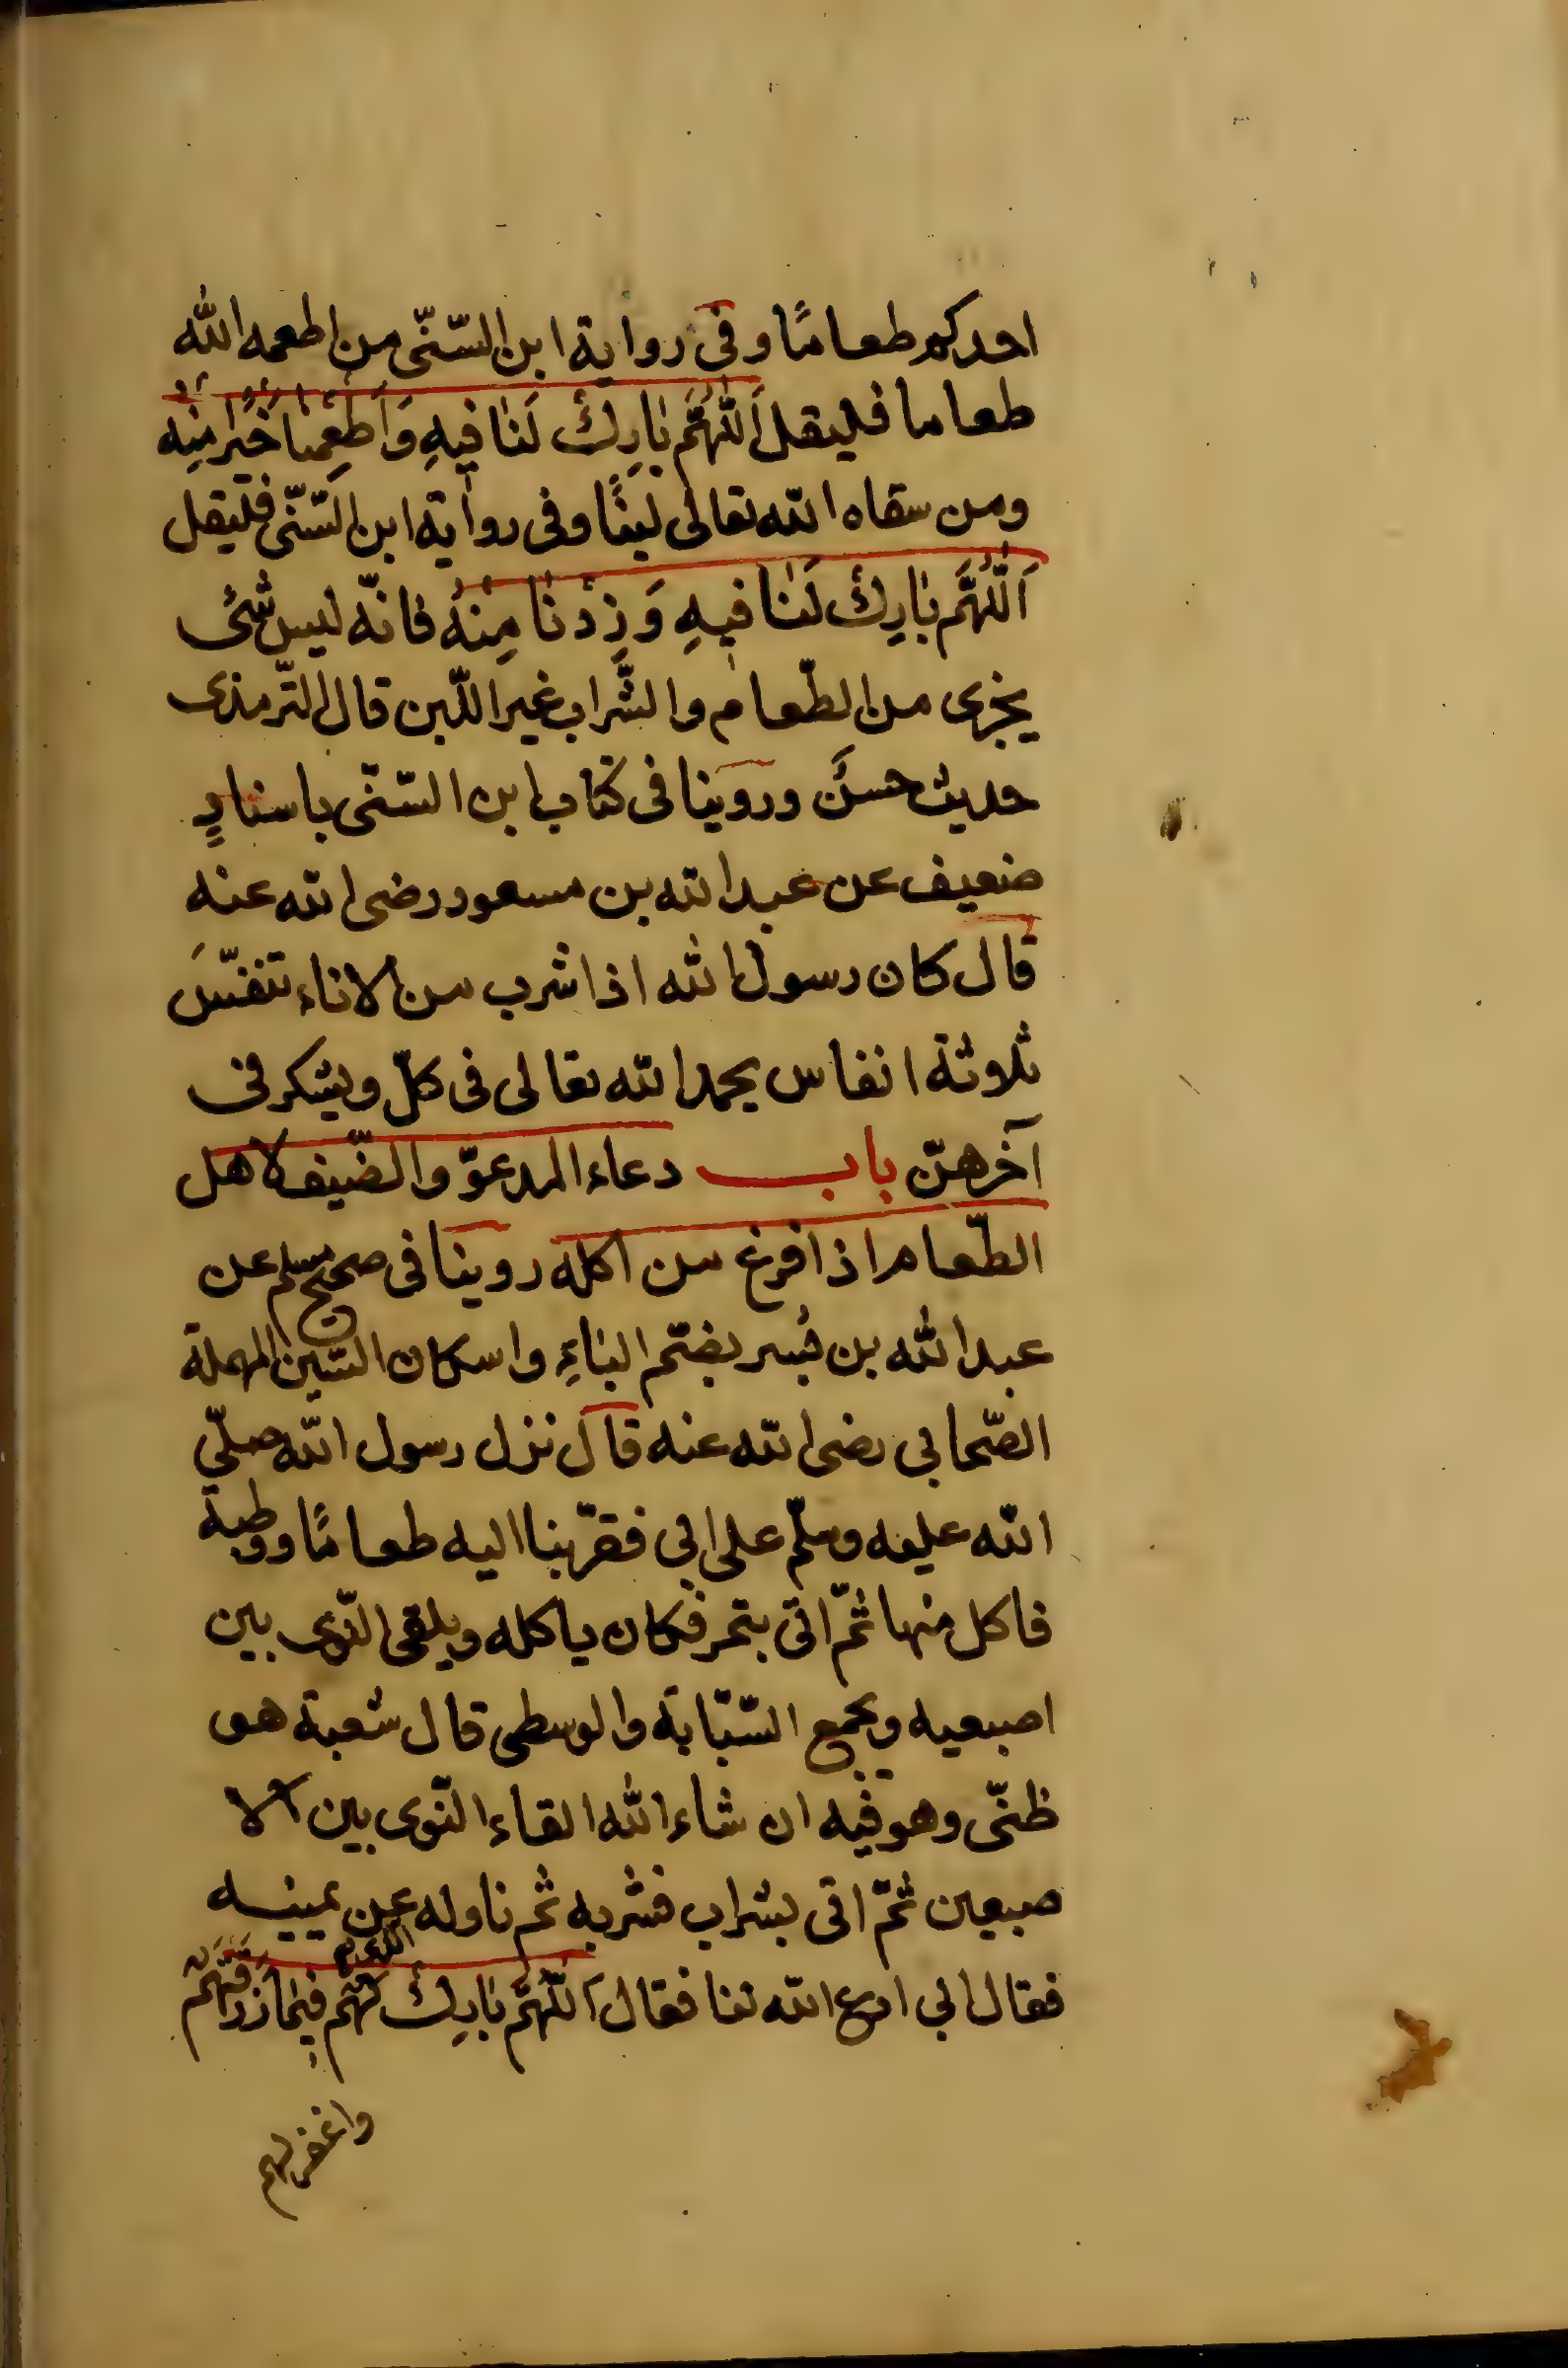 احدكم طعامًا وفى رواية ابن السّنّى من اطعمه الله
طعاما فليقل اَللّٰهُمَّ بٰارِكْ لَنٰا فيهِ وَاَطْعِمْنا خَيْرًا مِنْهُ
ومن سقاه الله تعالى لبنًا وفى رواية ابن السّنّى فليقل
اَللّٰهُمَّ بٰارِكْ لَنٰا فيهِ وَزِدْنٰا مِنْهُ فانّه ليس شئ
يجزى من الطّعام والشّراب غير اللّبن قال التّرمذى
حديث حسنٌ وروينا فى كتاب ابن السّنّى باسنادٍ
ضعيف عن عبد الله بن مسعود رضى الله عنه
قال كان رسول الله اذا شرب من الاناء تنفّسَ
ثلاوثة انفاس يحمد الله تعالى فى كلّ ويشكر فى
آخرهنّ باب دعاء المدعوّ والضّيف لاهل
الطّعام اذا فرغ من اكله روينا فى صحيح مسلم عن
عبد الله بن بُسر بضمّ الباءِ واسكان السّين المهملة
الصّحابى رضى الله عنه قال نزل رسول الله صلّى
الله عليه وسلّم على ابى فقرّبنا اليه طعامًا ووطبة
فاكل منها ثمّ اتى بتمر فكان ياكله ويلقى النّوى بين
اصبعيه ويجمع السّبّابة والوسطى قال شعبة هو
ظنّى وهو فيه ان شاء الله القاء النّوى بين الا
صبعين ثمّ اتى بشراب فشربه ثم ناوله عن يمينه
فقال ابى ادع الله لنا فقال اَللّٰهُمَّ بٰارِكْ لَهُمْ فيمٰا رَزَقْتَهُمْ
واغفر لهم